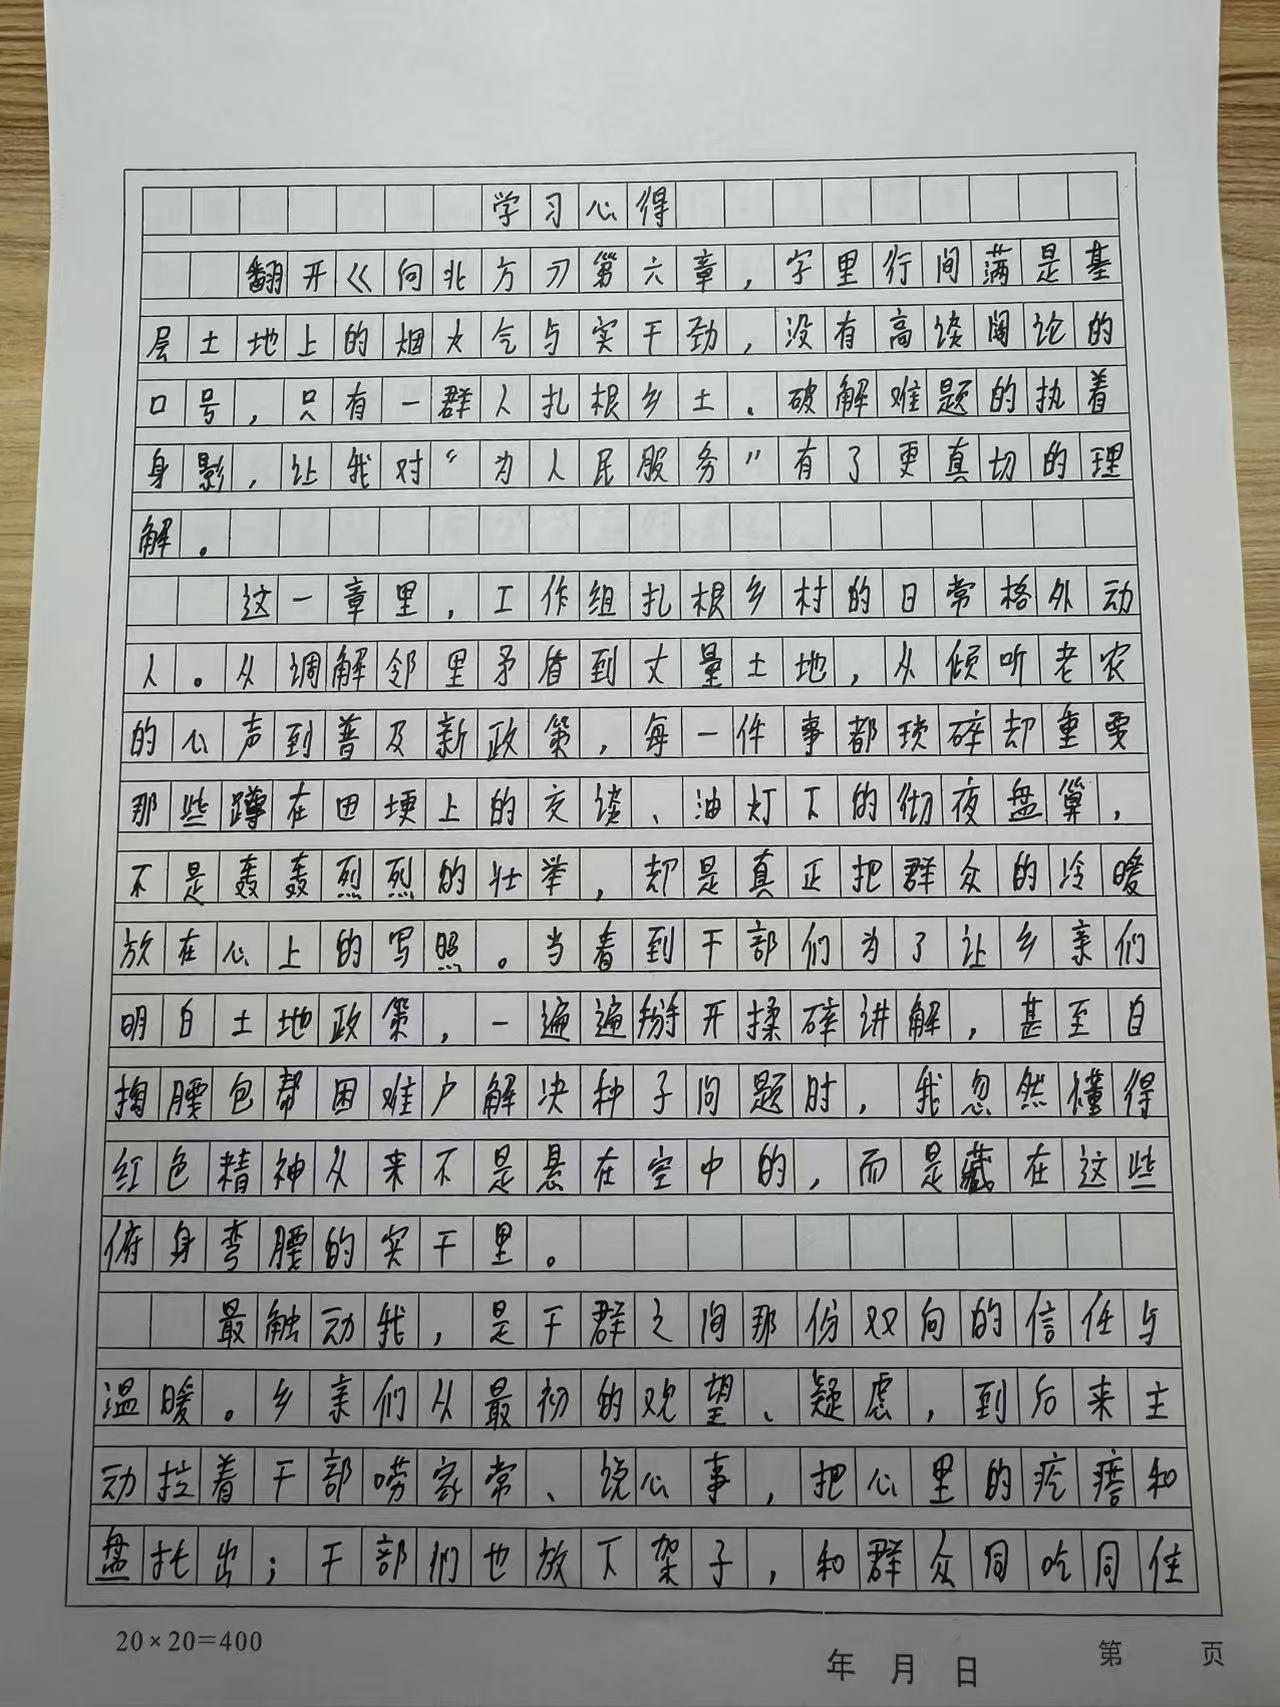 学习心得
翻开《向北方》第六章,字里行间满是基
层土地上的烟火气与实干劲,没有高谈阔论的
口号,只有一群人扎根乡土、破解难题的执着
身影,让我对“为人民服务”有了更真切的理
解。
这一章里,工作组扎根乡村的日常格外动
人。从调解邻里矛盾到丈量土地,从倾听老农
的心声到普及新政策,每一件事都琐碎却重要
那些蹲在田埂上的交谈、油灯下的彻夜盘算,
不是轰轰烈烈的壮举,却是真正把群众的冷暖
放在心上的写照。当看到干部们为了让乡亲们
明白土地政策,一遍遍掰开揉碎讲解,甚至自
掏腰包帮困难户解决种子问题时,我忽然懂得
红色精神从来不是悬在空中的,而是藏在这些
俯身弯腰的实干里。
最触动我,是干群之间那份双向的信任与
温暖。乡亲们从最初的观望、疑虑,到后来主
动拉着干部唠家常、说心事,把心里的疙瘩和
盘托出;干部们也放下架子,和群众同吃同住
20×20=400
年 月 日
第 页